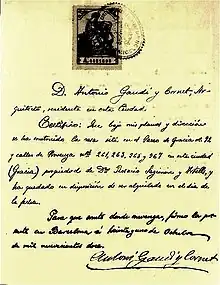 D. Antonio Gaudí y Cornet, Ar-
quitecto, residente en esta Ciudad.
Certifico: Que bajo mis planos y dirección
se ha construido la casa sita en el Paseo de Gracia nº 92
y calles de Provenza nos 261, 263, 265, y 267 en esta ciudad
(Gracia) propiedad de Dña Rosario Segimón y Artells, y
ha quedado en disposición de ser alquilada en el día de
la fecha.
Para que conste donde convenga, firmo la pre-
sente en Barcelona á de Octubre
de mil novecientos doce.
Antoni Gaudí y Cornet